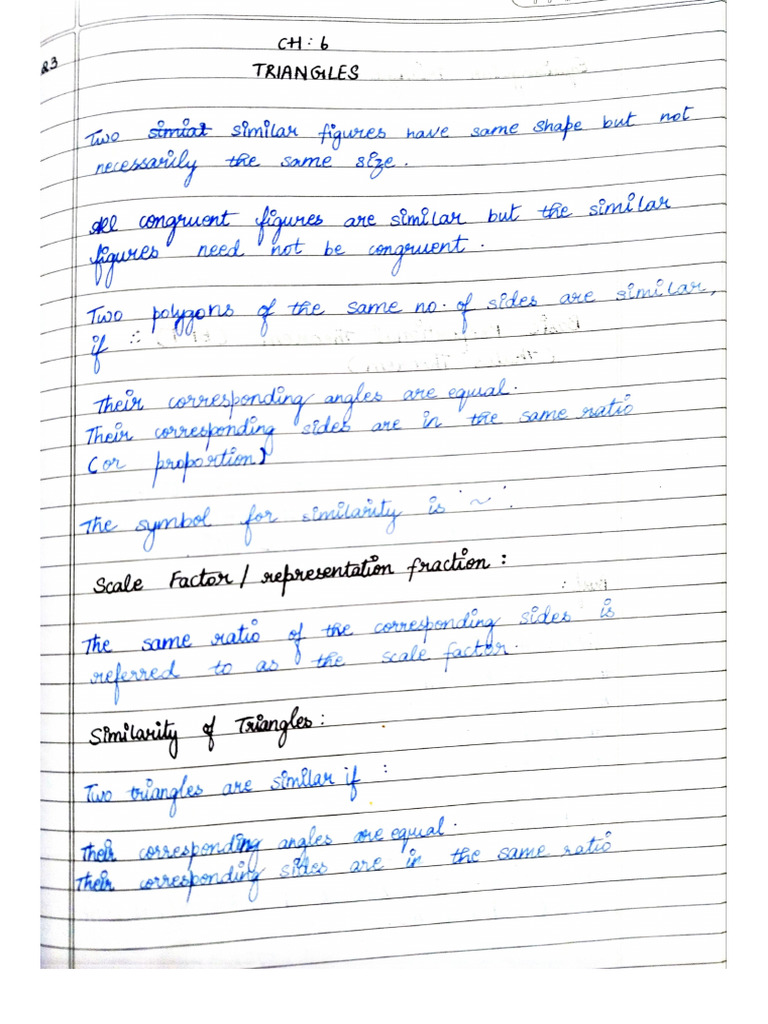 CH: 6
23
TRIANGLES
Two similar figures have same shape but not
necessarily the same size.
All congruent figures are similar but the similar
figures need not be congruent.
Two polygons of the same no. of sides are similar,
if
Their corresponding angles are equal.
Their corresponding sides are in the same ratio
(or proportion)
The symbol for similarity is '~'.
Scale Factor / representation fraction:
The same ratio of the corresponding sides is
referred to as the scale factor.
Similarity of Triangles:
Two triangles are similar if :
Their corresponding angles are equal.
Their corresponding sides are in the same ratio